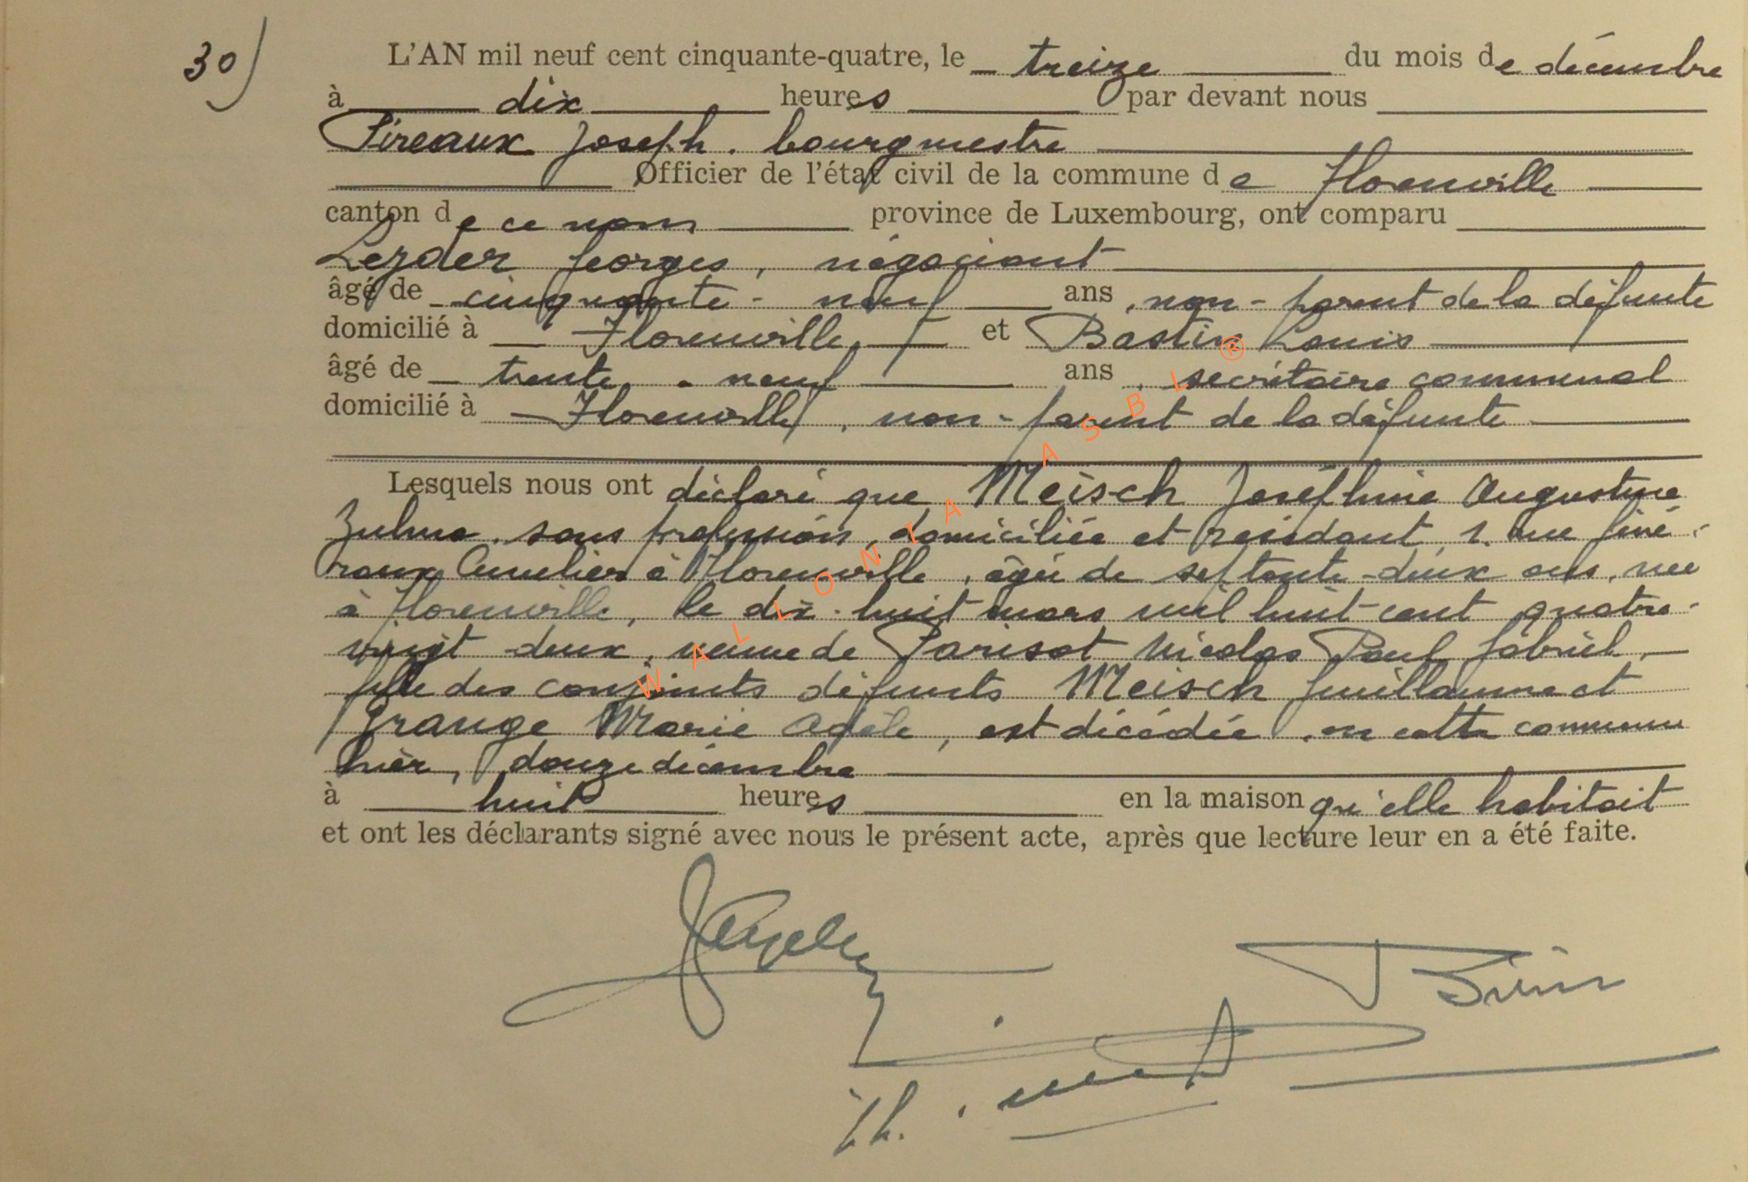 30)
L'AN mil neuf cent cinquante-quatre, le treize du mois de décembre
à dix heures par devant nous
Pireaux Joseph. bourgmestre
Officier de l'état civil de la commune de Florenville
canton de ce nom province de Luxembourg, ont comparu
Georges, négociant
âgé de cinquante-neuf ans, non-parent de la défunte
domicilié à Florenville, et Bastin Louis
âgé de trente-neuf ans, secrétaire communal
domicilié à Florenville, non-parent de la défunte
Lesquels nous ont déclaré que Meisch Joséphine Augustine
Zulma, sans profession, domiciliée et résidant, 1. rue Géné-
raux Cuvelier à Florenville, âgée de septante-deux ans, née
à Florenville, le dix-huit mars mil huit-cent quatre-
vingt deux, veuve de Parisot Nicolas Paul Gabriel,
fille des conjoints défunts Meisch Guillaume et
Grange Marie Adèle, est décédée, en cette commune
hier, douze décembre
à huit heures en la maison qu'elle habitait
et ont les déclarants signé avec nous le présent acte, après que lecture leur en a été faite.
WALLONIA ASBL ®